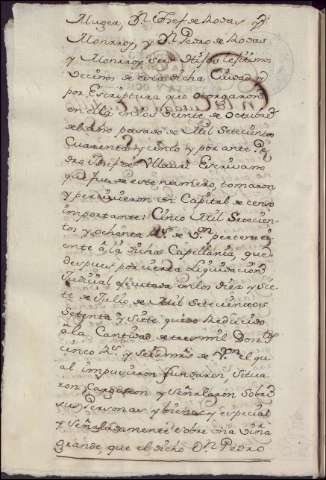 Muger, Dn. Josef de Rosas y
Monrroy, y Dn. Pedro de Rosas
y Monrroy sus Hijos lexitimos
Vecinos de esta dicha Ciudad
por Escriptura que otorgaron
en ella en los veinte de Octubre
del año pasado de Mil Setecientos
Cuarenta y cinco y por ante
Escrivano
que fue de este numero, tomaron
y percivieron un Capital de censo
importante Cinco Mil Setecien
tos y ochenta Rs. de Vn. perteneci
ente a la dicha Capellania, que
despues por cierta liquidacion
Judicial ejecutada en los diez y sie
te de Julio de Mil Setecientos
Setenta y Siete quedo Reducido
a la Cantidad de tres mil
cinco Rs. y mrs. de Vn. el qu
al impusieron fundaron, situa
ron cargaron y señalaron sobre
sus Personas y bienes y especial
y señaladamente sobre una viña
grande, que el dicho Dn. Pedro